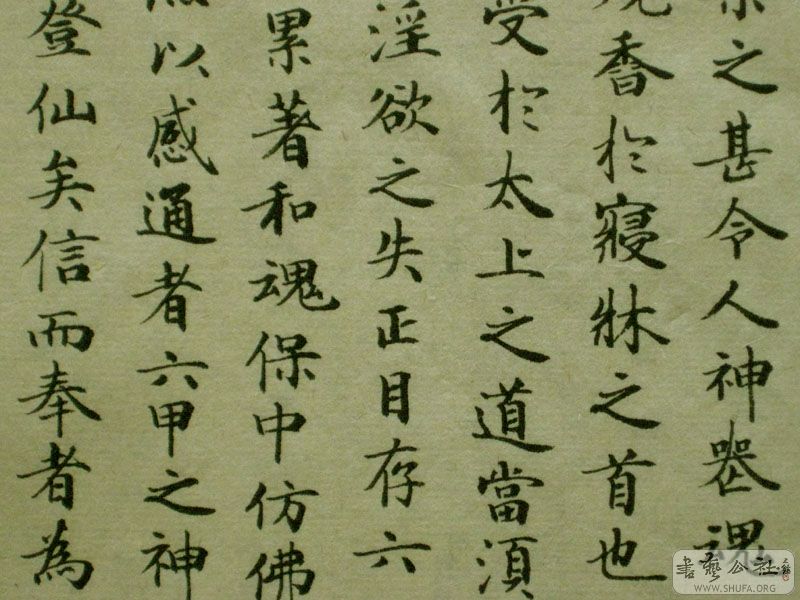 之甚令人神器魂
香於寢牀之首也
受於太上之道當須
淫欲之失正目存六
累著和魂保中仿佛
以感通者六甲之神
登仙矣信而奉者為
書藝公社
WWW.SHUFA.ORG